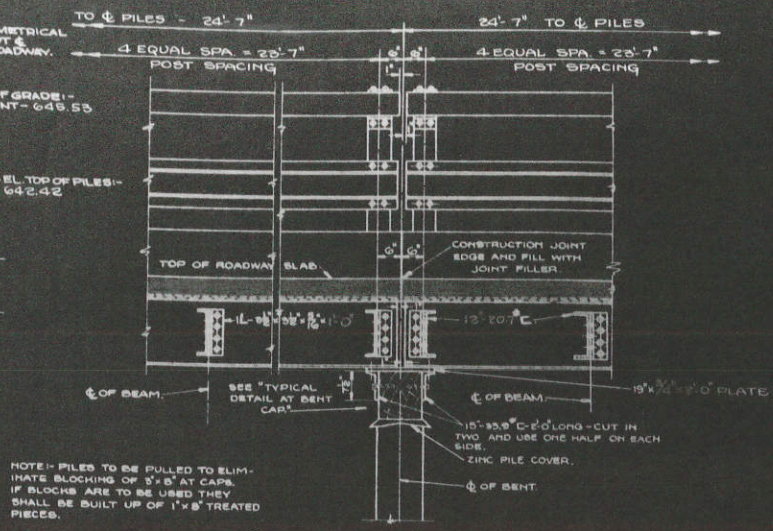 TO ℄ PILES - 24'-7"
24'-7" TO ℄ PILES
METRICAL
T ℄
ROADWAY.
4 EQUAL SPA. = 23'-7"
POST SPACING
6" 6"
1"
4 EQUAL SPA. = 23'-7"
POST SPACING
F GRADE:-
NT - 645.53
EL. TOP OF PILES:-
642.42
6" 6"
TOP OF ROADWAY SLAB.
CONSTRUCTION JOINT
EDGE AND FILL WITH
JOINT FILLER.
13"-20.7# C
℄ OF BEAM.
SEE "TYPICAL
DETAIL AT BENT
CAP."
7½"
℄ OF BEAM.
PLATE
15"-33.9# C-2'-0" LONG - CUT IN
TWO AND USE ONE HALF ON EACH
SIDE.
ZINC PILE COVER.
℄ OF BENT.
NOTE:- PILES TO BE PULLED TO ELIM-
INATE BLOCKING OF 3"x8" AT CAPS.
IF BLOCKS ARE TO BE USED THEY
SHALL BE BUILT UP OF 1"x8" TREATED
PIECES.